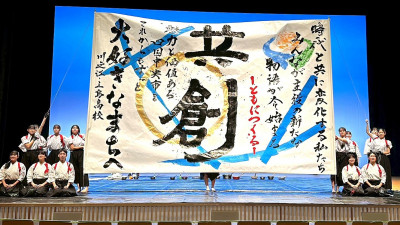 時代と共に変化する私たち
みんなが主役の新たな
物語が今始まる
共創
―ともにつくる―
力と価値ある
四国中央市
これからも
大好きなまちへ
川之江高校